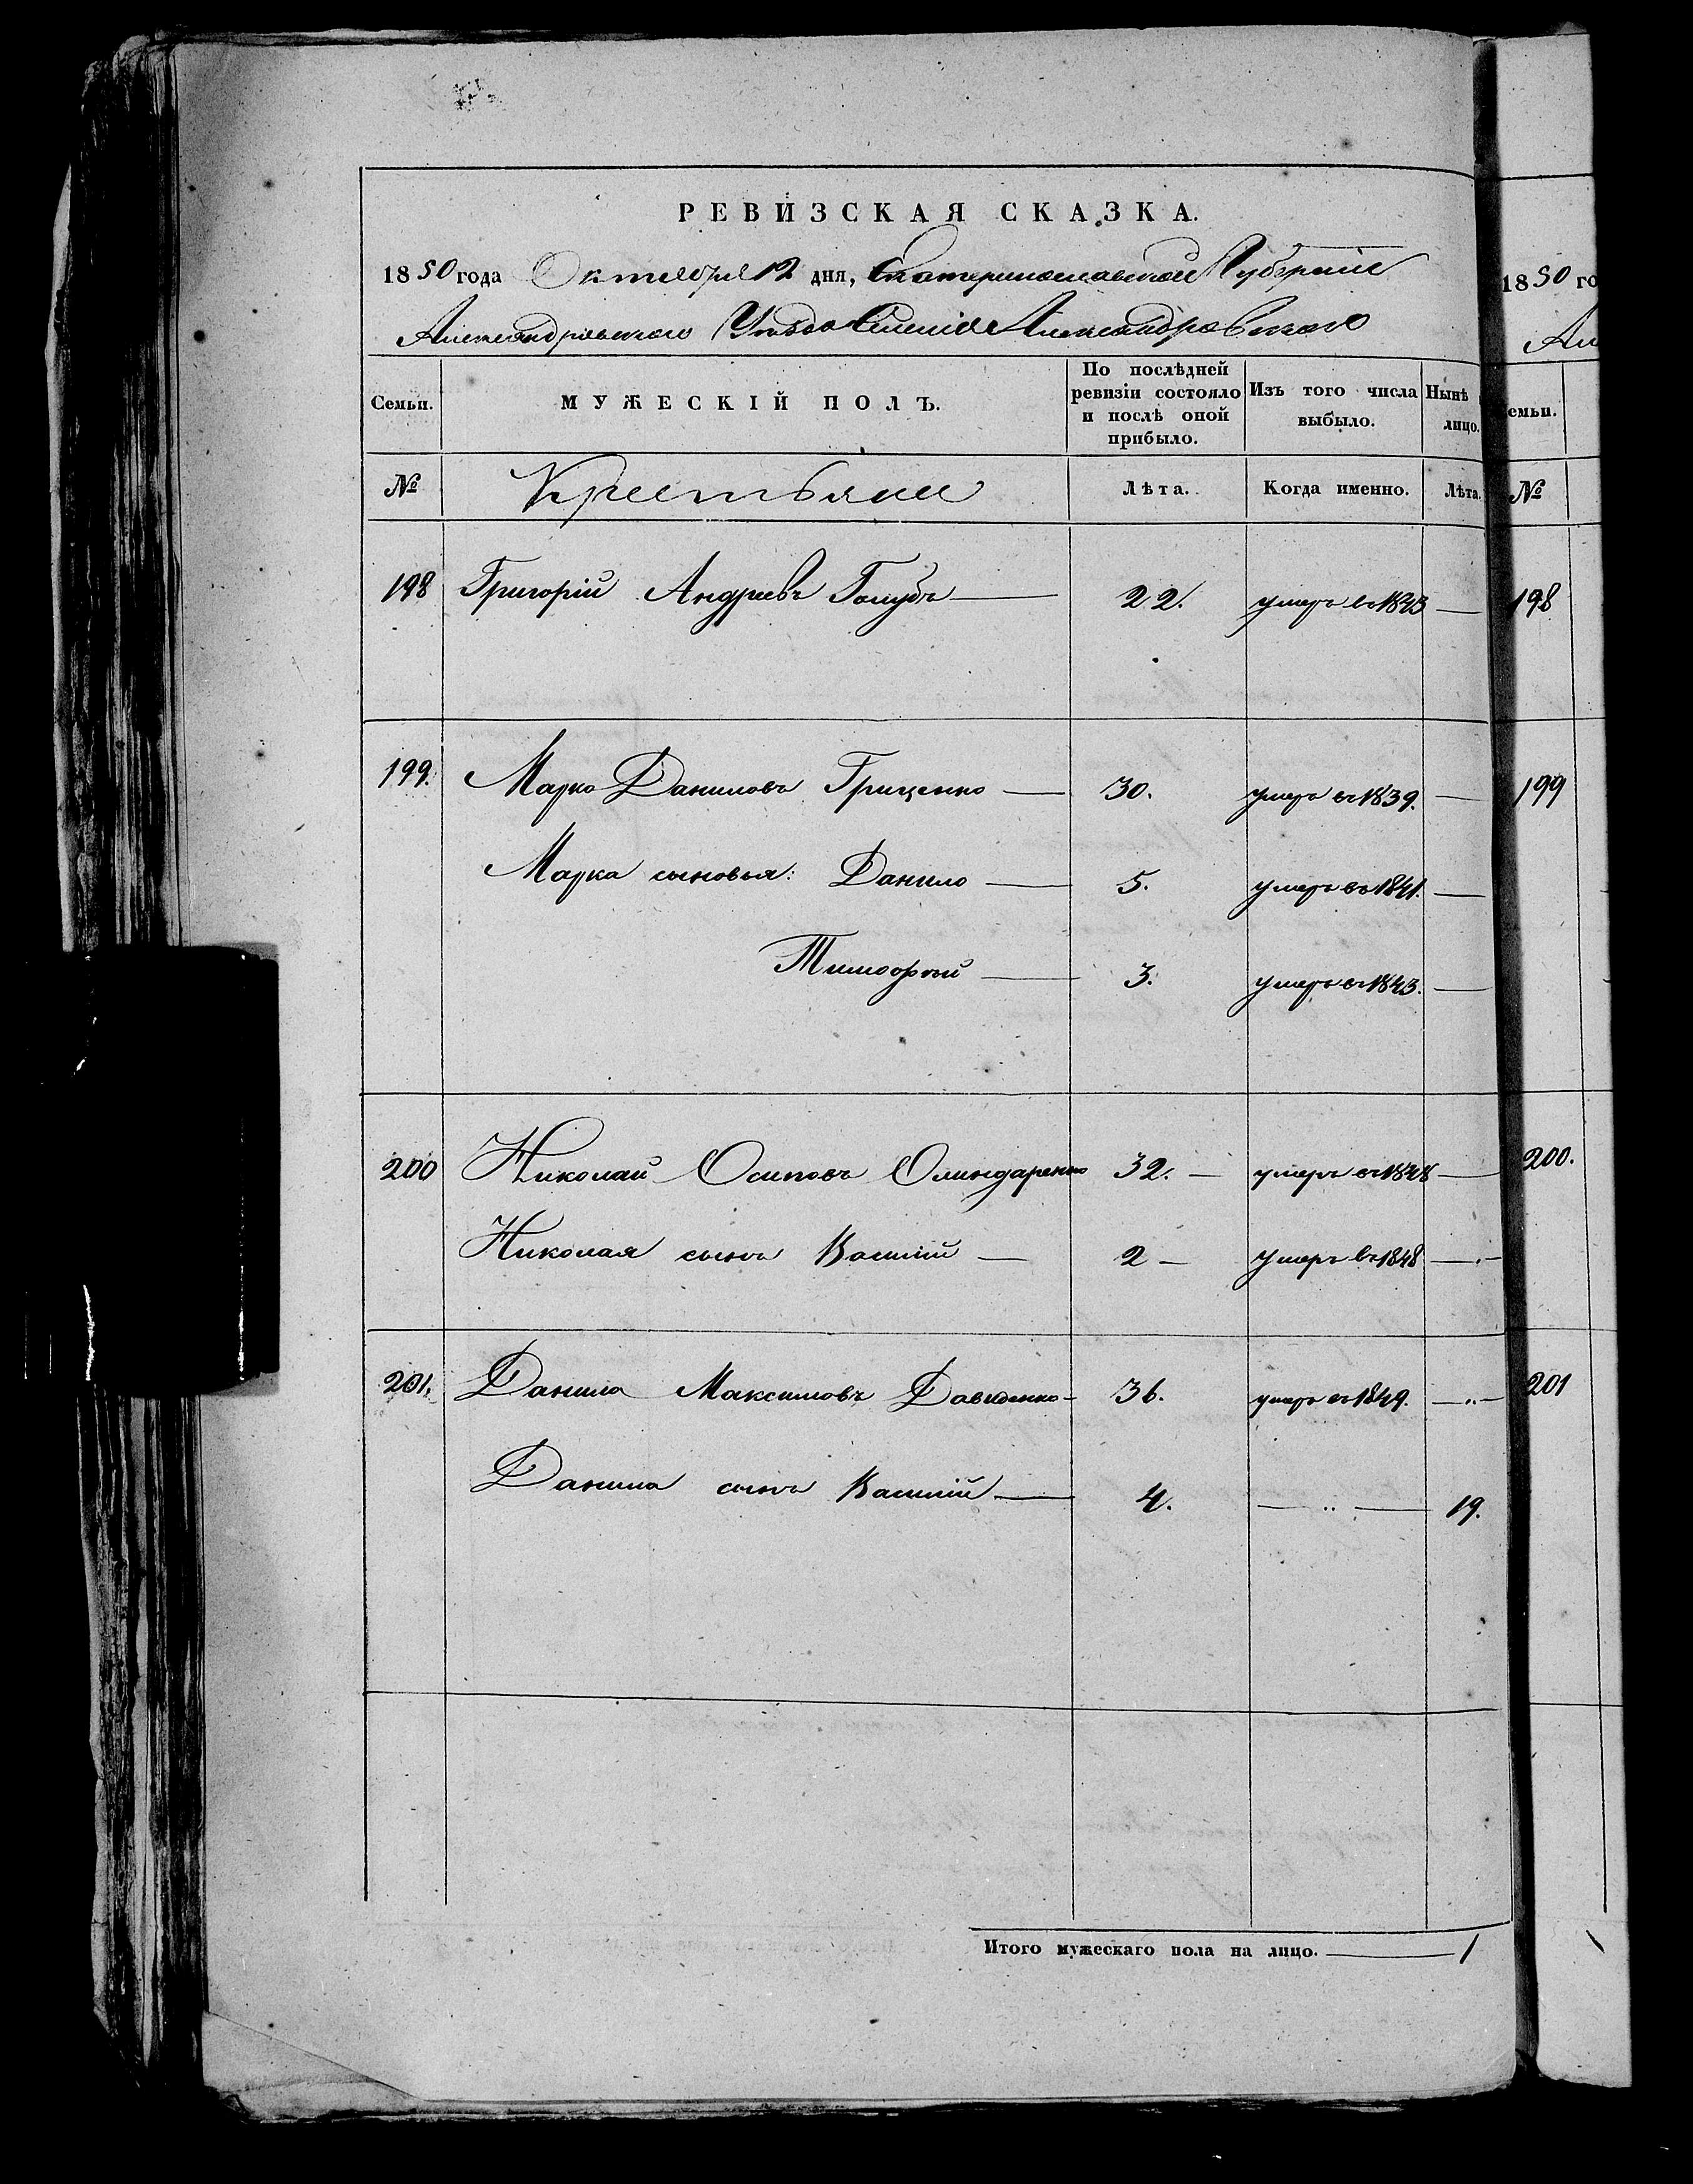 РЕВИЗСКАЯ СКАЗКА.
1850 года Октября 12 дня, Екатеринославской Губернии
Александровского Уезда Селения Александровского
Семьи. МУЖЕСКІЙ ПОЛЪ. По послѣдней ревизіи состояло и послѣ оной прибыло. Изъ того числа выбыло. Нынѣ лицо.
№ Крестьяне Лѣта. Когда именно. Лѣта.
198 Григорій Андреевъ Голубъ 22. умеръ въ 1843
199. Марко Даниловъ Гриценко 30. умеръ въ 1839.
Марка сыновья: Данило 5. умеръ въ 1841.
Тимофей 3. умеръ въ 1843.
200 Николай Осиповъ Олиндаренко 32. умеръ въ 1848
Николая сынъ Василій 2 умеръ въ 1848
201. Данила Максимовъ Давиденко 36. умеръ въ 1849.
Данила сынъ Василій 4. 19.
Итого мужескаго пола на лицо. 1
1850 го
Ал
емьи.
№
198
199
200.
201